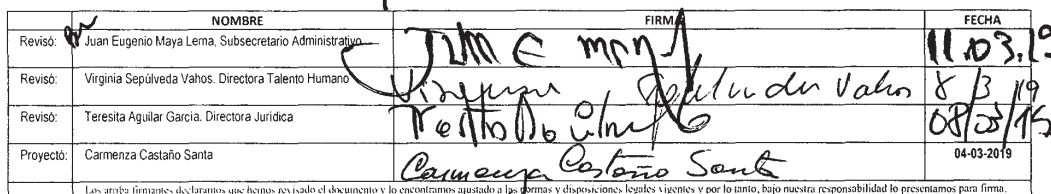 NOMBRE FIRMA FECHA
Revisó: Juan Eugenio Maya Lema, Subsecretario Administrativo 11.03.19
Revisó: Virginia Sepúlveda Vahos. Directora Talento Humano Virginia Sepúlveda Vahos 8/3/19
Revisó: Teresita Aguilar García. Directora Jurídica 08/03/19
Proyectó: Carmenza Castaño Santa Carmenza Castaño Santa 04-03-2019
Los arriba firmantes declaramos que hemos revisado el documento y lo encontramos ajustado a las normas y disposiciones legales vigentes y por lo tanto, bajo nuestra responsabilidad lo presentamos para firma.